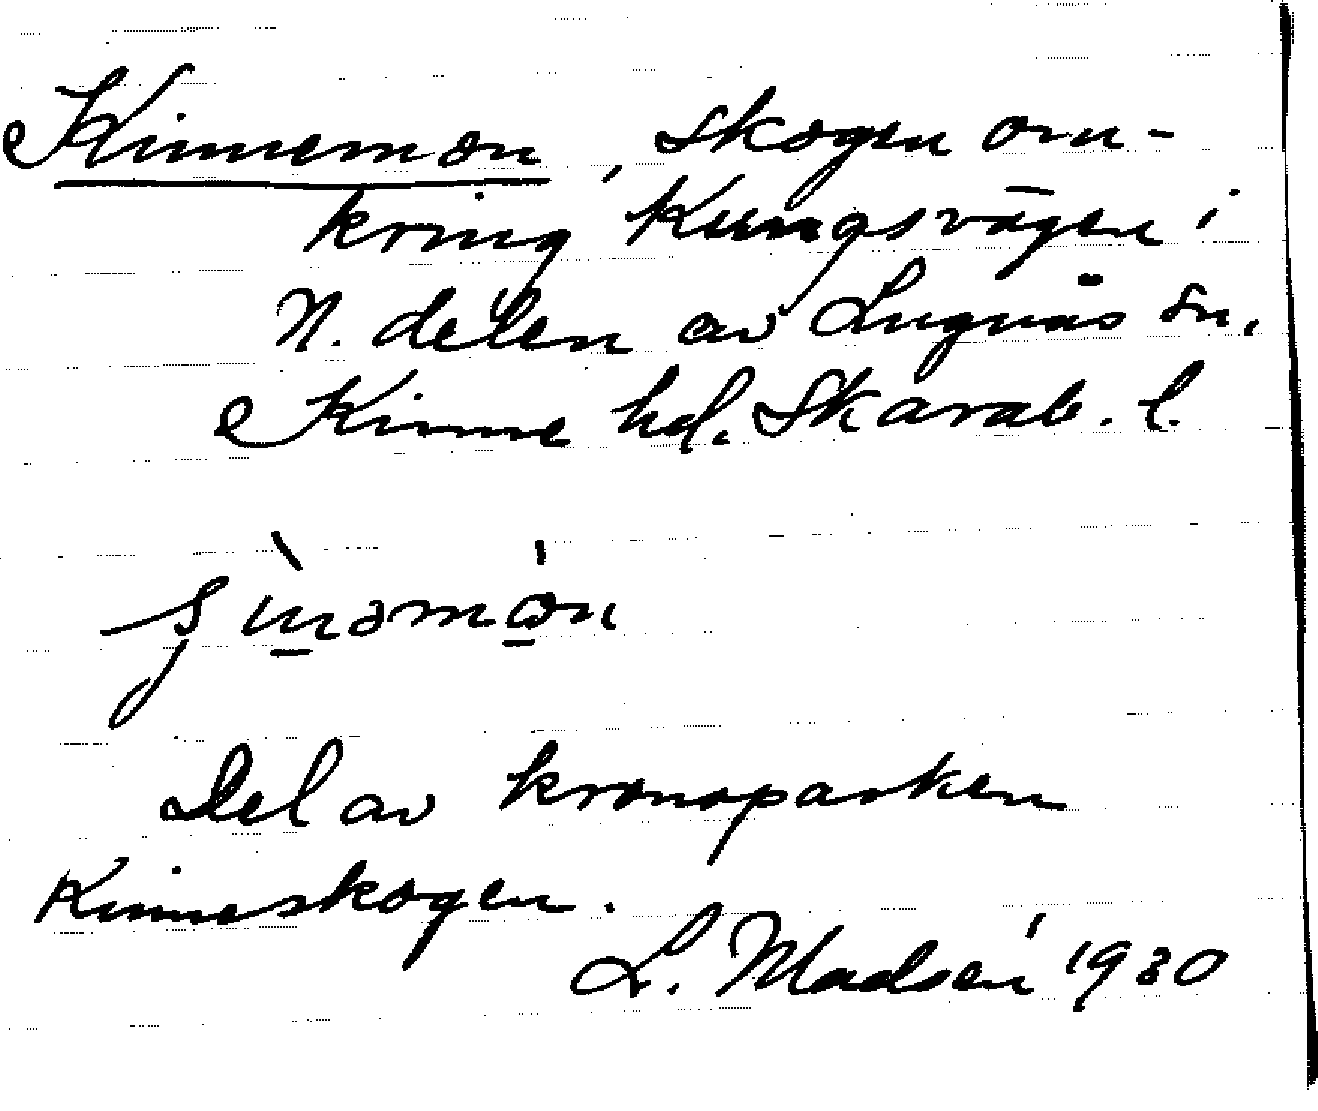 Kinnemon, skogen om-
kring Kungsvägen i
N. delen av Lugnås sn,
Kinne hd. Skarab. l.
Del av kronoparken
Kinneskogen.
L. Madsén 1930